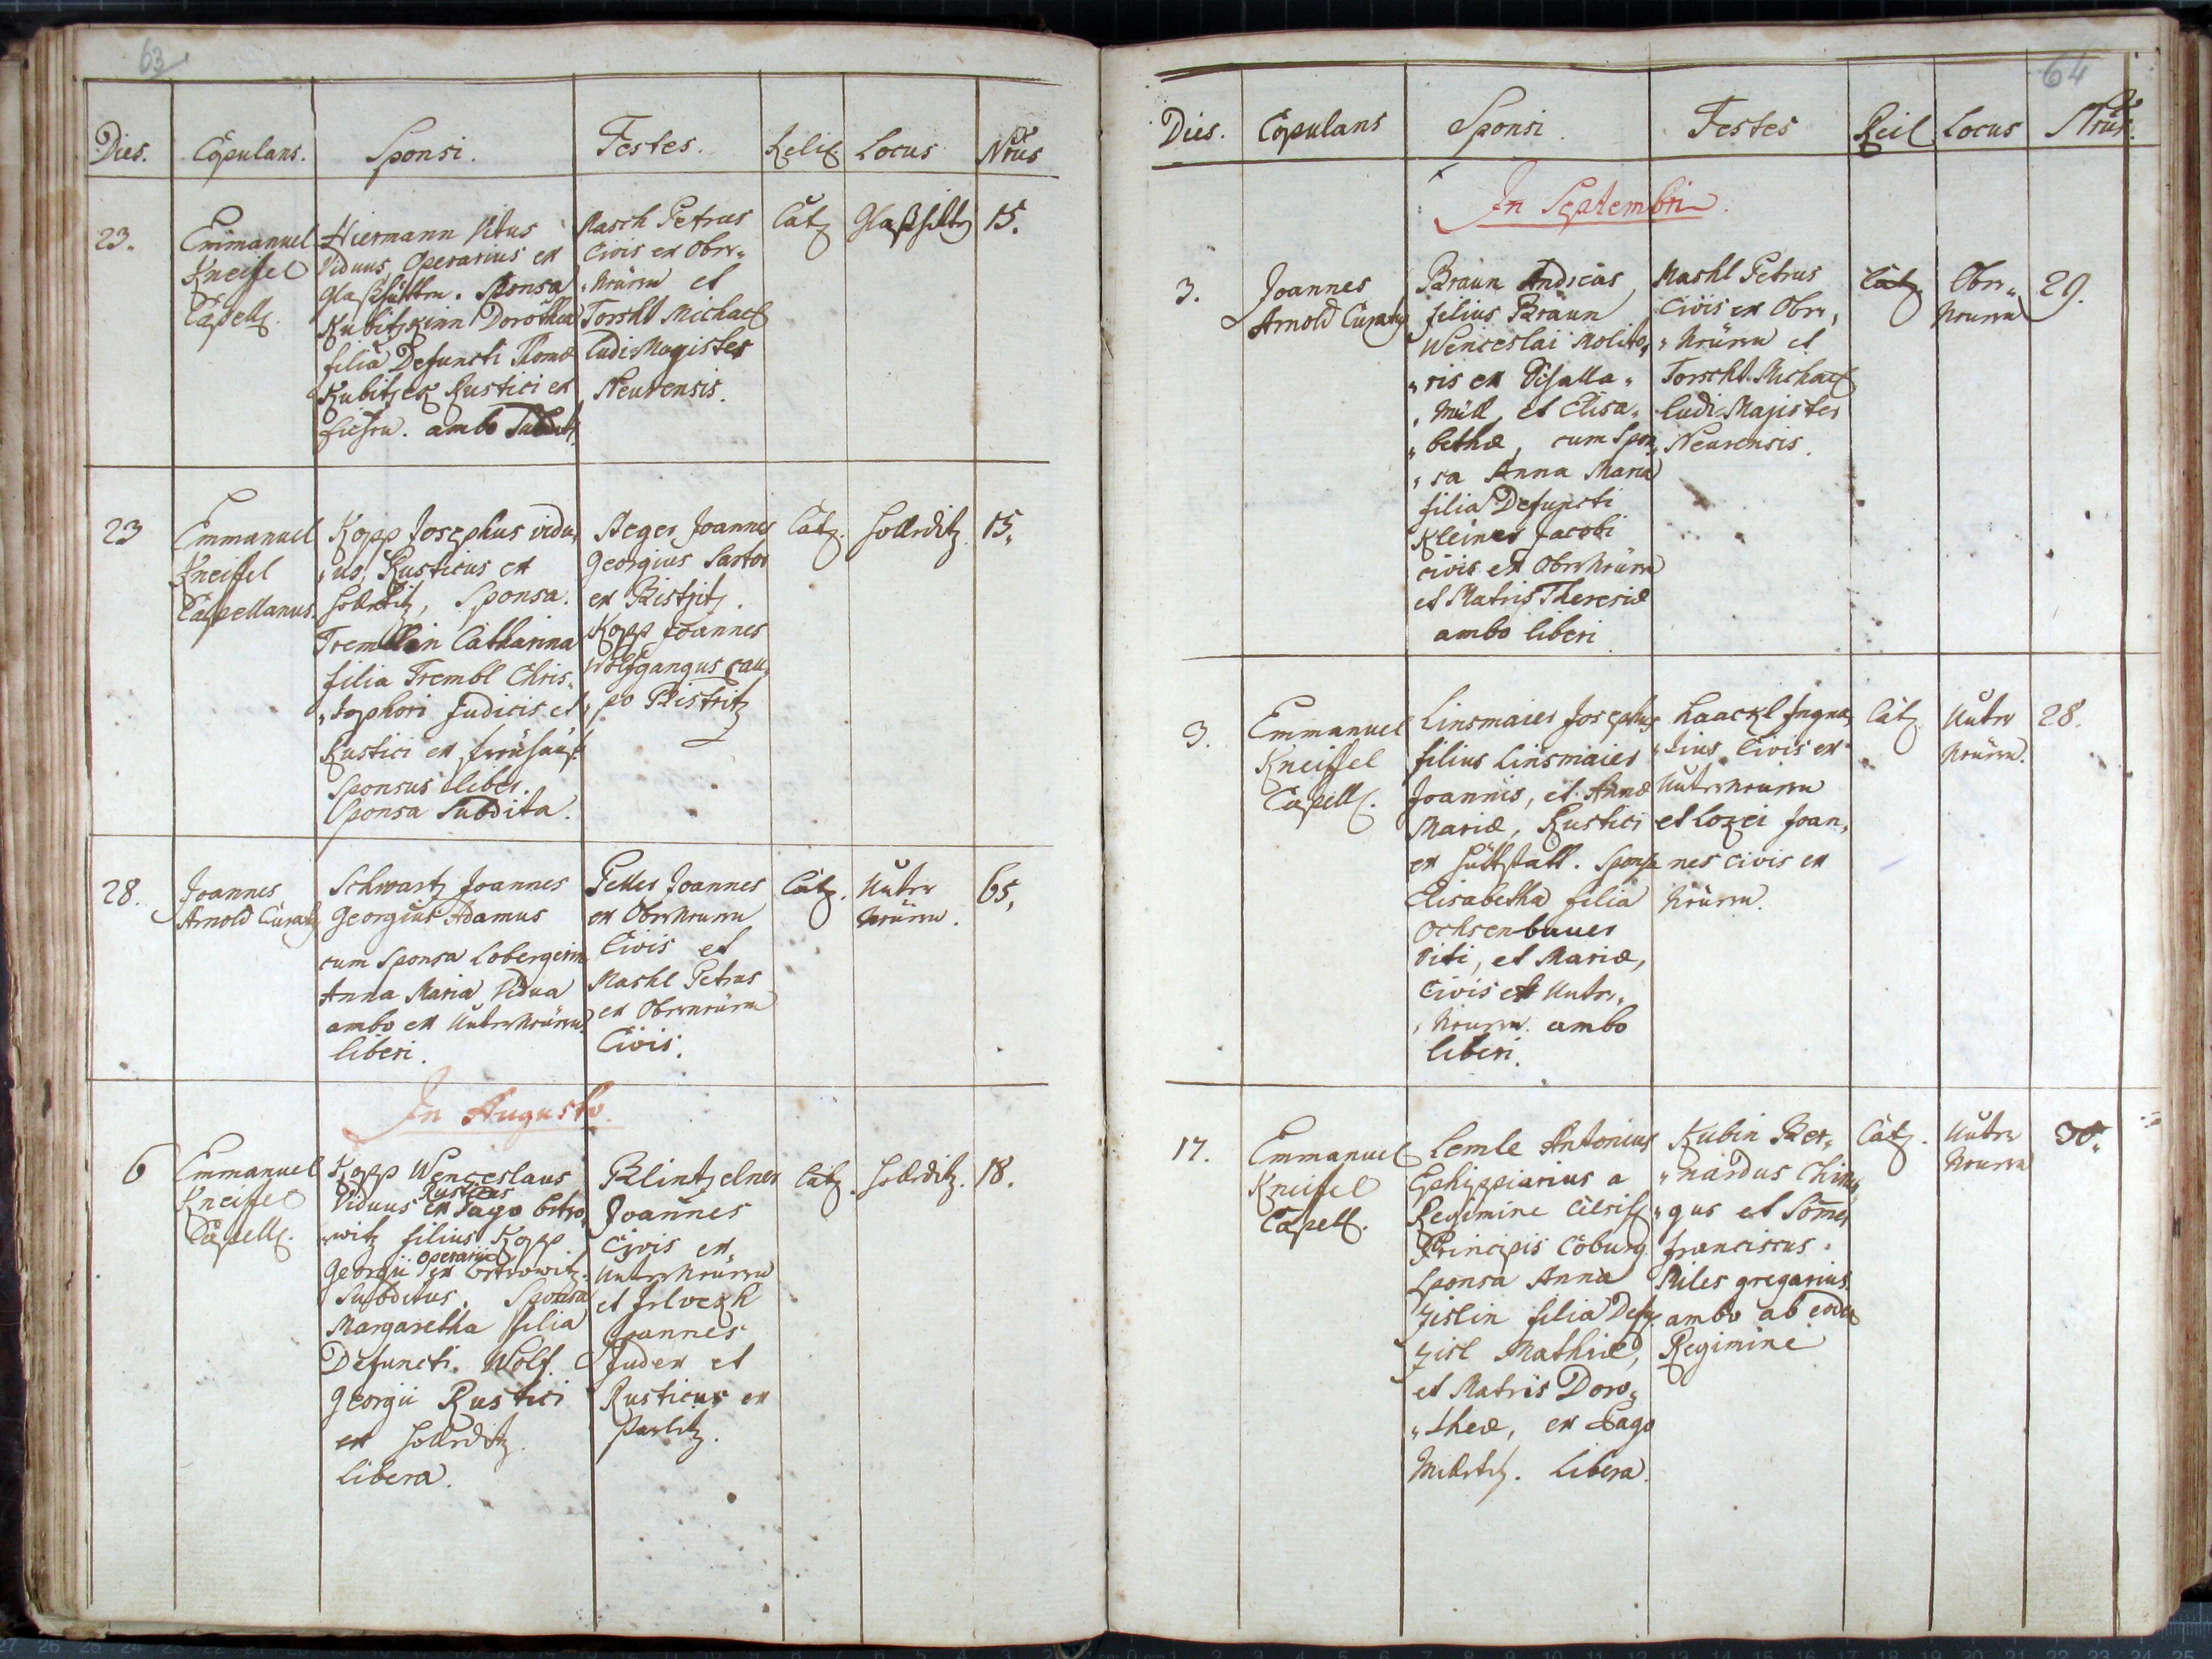 63
Dies. Copulans. Sponsi. Testes. Relig Locus Nrus
23. Emmanuel Kneissel Capell.
Hiermann Vitus
Viduus, Operarius ex
Glaßhütten. Sponsa
Kubitzkinn Dorothea
filia Defuncti Thomæ
Kubitzek Rustici ex
ambo Subditi
Rasch Petrus
Civis ex Obern
Neuern et
Torschl Michael
Ludi Magister
Neurensis.
Cat. Glaßhütt 15.
23 Emmanuel Kneissel Capellanus.
Kopp Josephus vidu„
„us, Rusticus ex
Hollrditz, Sponsa.
Tremllin Catharina
filia Trembl Chris„
„tophori Judicis et
Rustici ex
Sponsus liber.
Sponsa Subdita.
Aeger Joannes
Georgius Sartor
ex Bistritz.
Kopp Joannes
Wolfgangus cau„
„po Bistritz
Catz. Hollrditz. 15.
28. Joannes Arnold Curatus
Schwartz Joannes
Georgius Adamus
cum Sponsa Lobergerin
Anna Maria Vidua
ambo ex Unter Neuern
liberi.
Peller Joannes
ex Oberneuern
Civis et
Maschl Petrus
ex Oberneuern
Civis.
Catz. Unter Neuern. 65,
In Augusto.
6 Emmanuel Kneissel Capell.
Kopp Wenceslaus
Viduus Rusticus ex Pago Ostro„
„witz filius Kopp
Georgii operarii ex Ostrowitz.
Subditus. Sponsa
Margaretha filia
Defuncti. Wolf
Georgii Rustici
ex Hollrditz.
Libera.
Blintzelner
Joannes
Civis ex
Unter Neuern
et
Joannes
Judex et
Rusticus ex
Catz. Hollrditz. 18.
64
Dies. Copulans Sponsi. Testes Reil Locus Nrus.
In Septembri.
3. Joannes Arnold Curatus
Braun Andreas,
filius Braun
Wenceslai Molito„
„ris ex
„Müll, et Elisa„
„bethæ, cum Spon„
„sa Anna Maria
filia Defuncti
Kleiner Jacobi
civis ex Oberneuern
et Matris Theresiæ
ambo liberi
Maschl Petrus
Civis ex Ober„
„Neuern et
Torschl Michael
Ludi-Magister
Neurensis.
Catz Ober„ Neuern 29.
3. Emmanuel Kneissel Capell.
Linsmaier Josephus
filius Linsmaier
Joannis, et Annæ
Mariæ, Rustici
ex Hüttstall. Sponsa
Elisabetha filia
Ochsenbauer
Viti, et Mariæ,
Civis ex Unter„
„Neuern. ambo
liberi.
Laackl Ingna„
„tius Civis ex
Unterneuern
et Joan„
nes civis ex
Neuern.
Catz. Unter Neuern. 28.
17. Emmanuel Kneissel Capell.
Lemle Antonius
Ephippiarius a
Regimine
Principis Coburg.
Sponsa Anna
Zislin filia Def.
Zisl Mathiæ,
et Matris Doro„
„theæ, ex Pago
Milletitz. Libera.
Kubin Ber„
„nardus Chirur„
„gus et Somer
Franciscus.
Miles gregarius.
ambo ab eodem
Regimine
Catz. Unter Neuern 30.